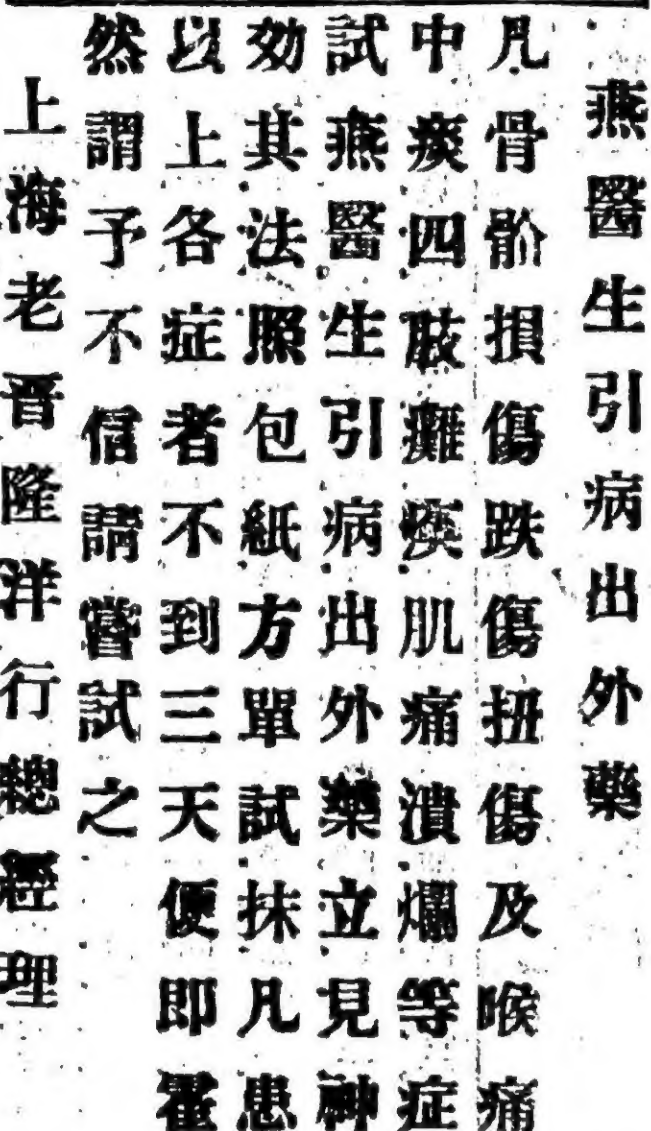 燕醫生引病出外藥
凡骨骱損傷跌傷扭傷及喉痛
中痰四肢癱瘓肌痛潰爛等症
試燕醫生引病出外藥立見神
効其法照包紙方單試抹凡患
以上各症者不到三天便即霍
然謂予不信請嘗試之
上海老晋隆洋行總經理